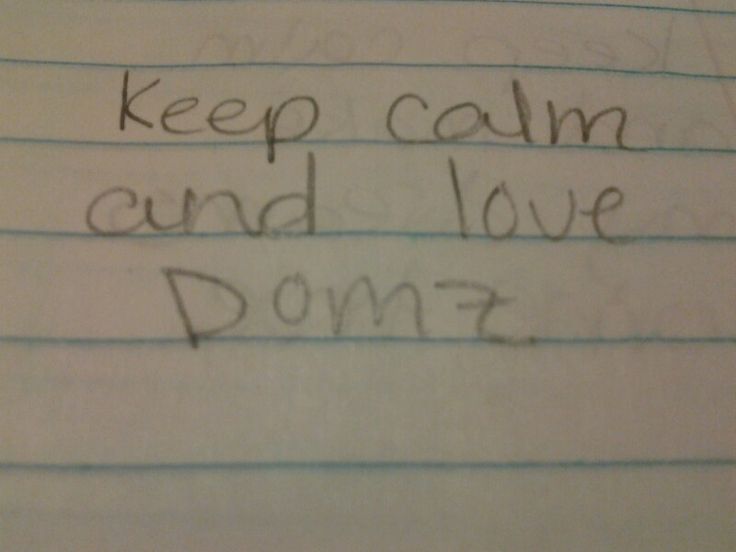 Keep calm
and love
Domz